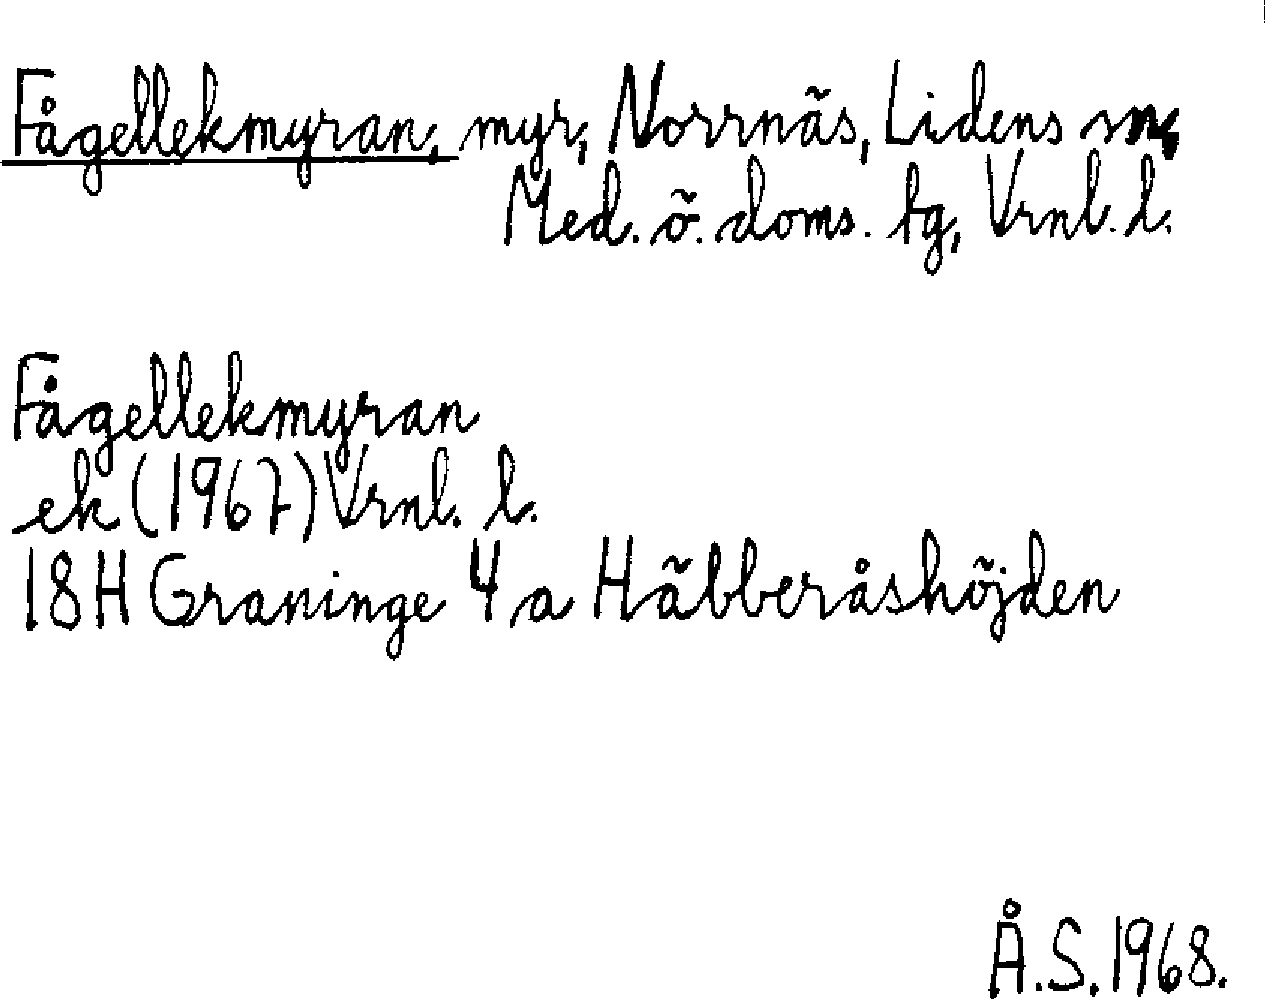 Fågellekmyran, myr, Norrnäs, Lidens sn,
Med. ö. doms. tg, Vrnl. l.
Fågellekmyran
ek (1967) Vrnl. l.
18H Graninge 4 a Häbberåshöjden
Å.S. 1968.